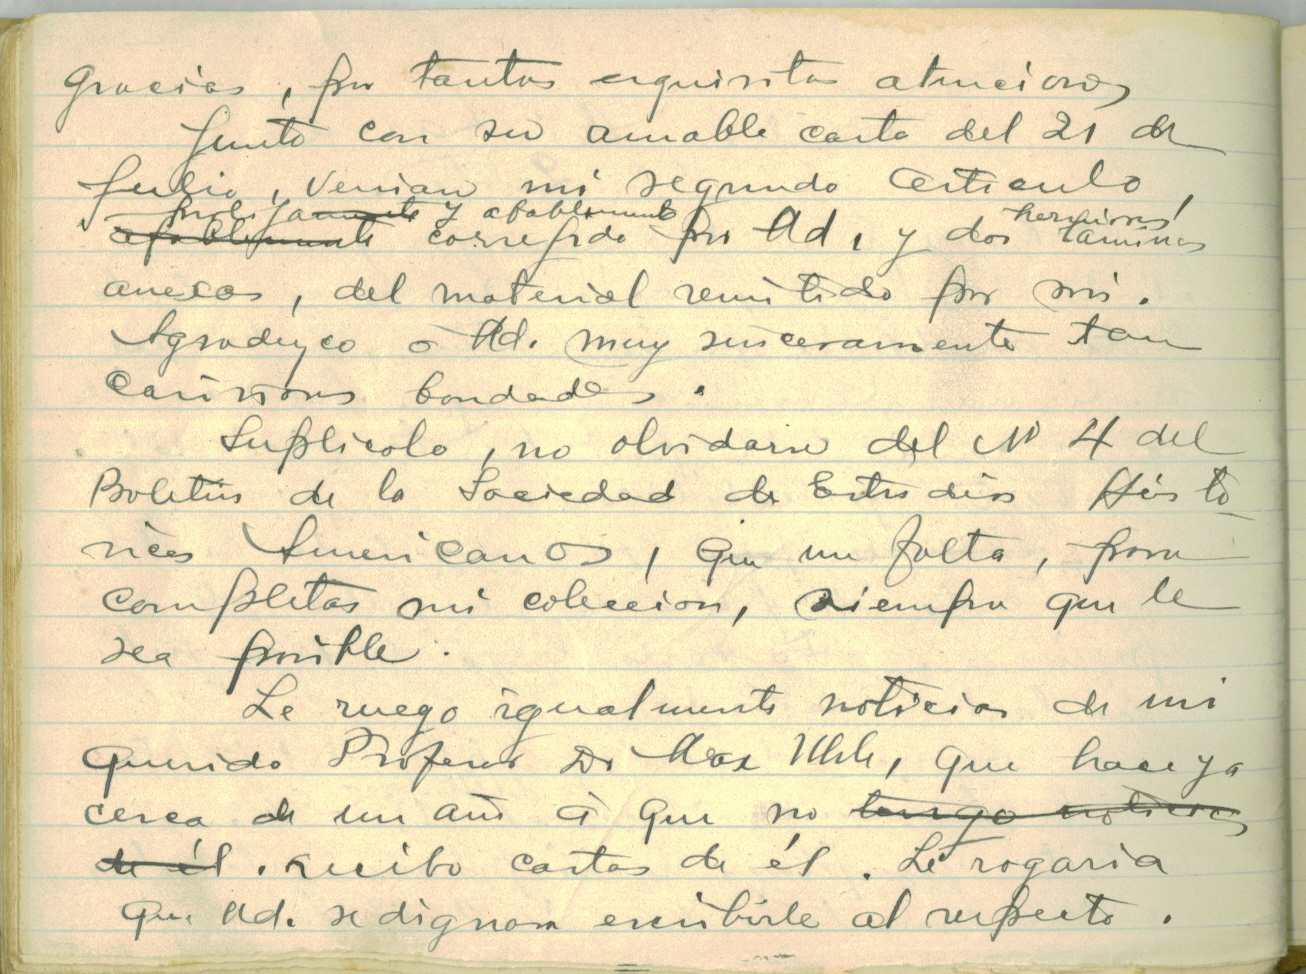 Gracias, por tantas exquisitas atenciones
Junto con su amable carta del 21 de
Julio, venian mi segundo articulo,
prolijamente y afablemente hermosas
afablemente corregido por Ud, y dos laminas
anexas, del material remitido por mi.
Agradezco a Ud. muy sinceramente tan
cariñosas bondades.
Suplicole, no olvidarse del Nº 4 del
Boletin de la Sociedad de Estudios Histo-
ricos Americanos, que me falta, para
completar mi coleccion, siempre que le
sea posible.
Le ruego igualmente noticias de mi
querido Profesor Dr Max Uhle, que hace ya
cerca de un año á que no tengo noticias
de él. recibo cartas de él. Le rogaria
que Ud. se dignara escribirle al respecto.